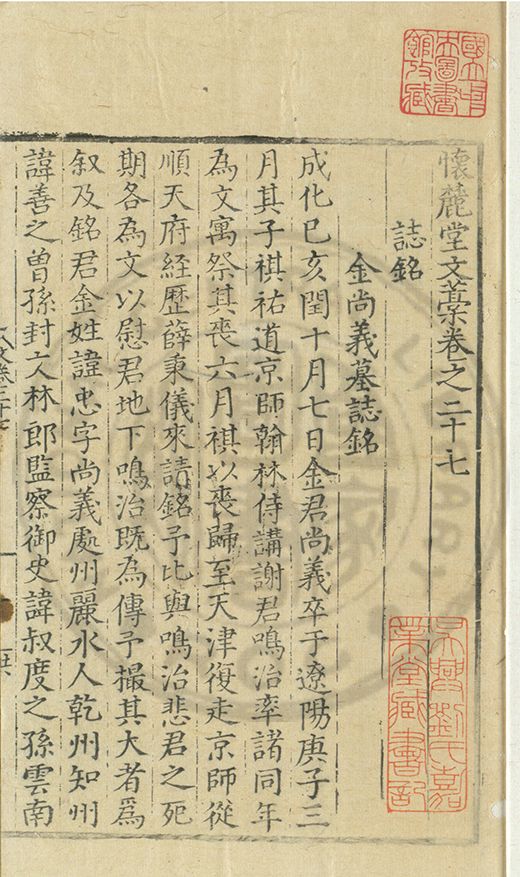 懷麓堂文藁卷之二十七
誌銘
金尚義墓誌銘
成化己亥閏十月七日金君尚義卒于遼陽庚子三
月其子祺祐道京師翰林侍講謝君鳴治率諸同年
為文寓祭其喪六月祺以喪歸至天津復走京師從
順天府経歷薛秉儀來請銘予比與鳴治悲君之死
期各為文以慰君地下鳴治既為傳予撮其大者爲
叙及銘君金姓諱忠字尚義處州麗水人乾州知州
諱善之曾孫封文林郎監察御史諱叔度之孫雲南
國立中央圖書館收藏
吳興劉氏嘉業堂藏書記